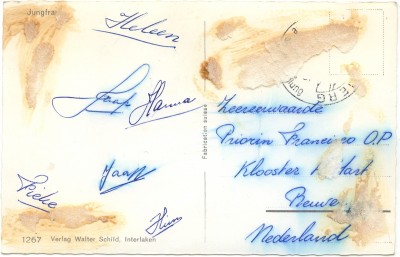 Jungfra
Heleen
Jaap Hanna
Jaap
Pieke
1267 Verlag Walter Schild, Interlaken
Fabrication suisse
Zeereerwaarde
Priorin Francisco O.P
Klooster
Nederland